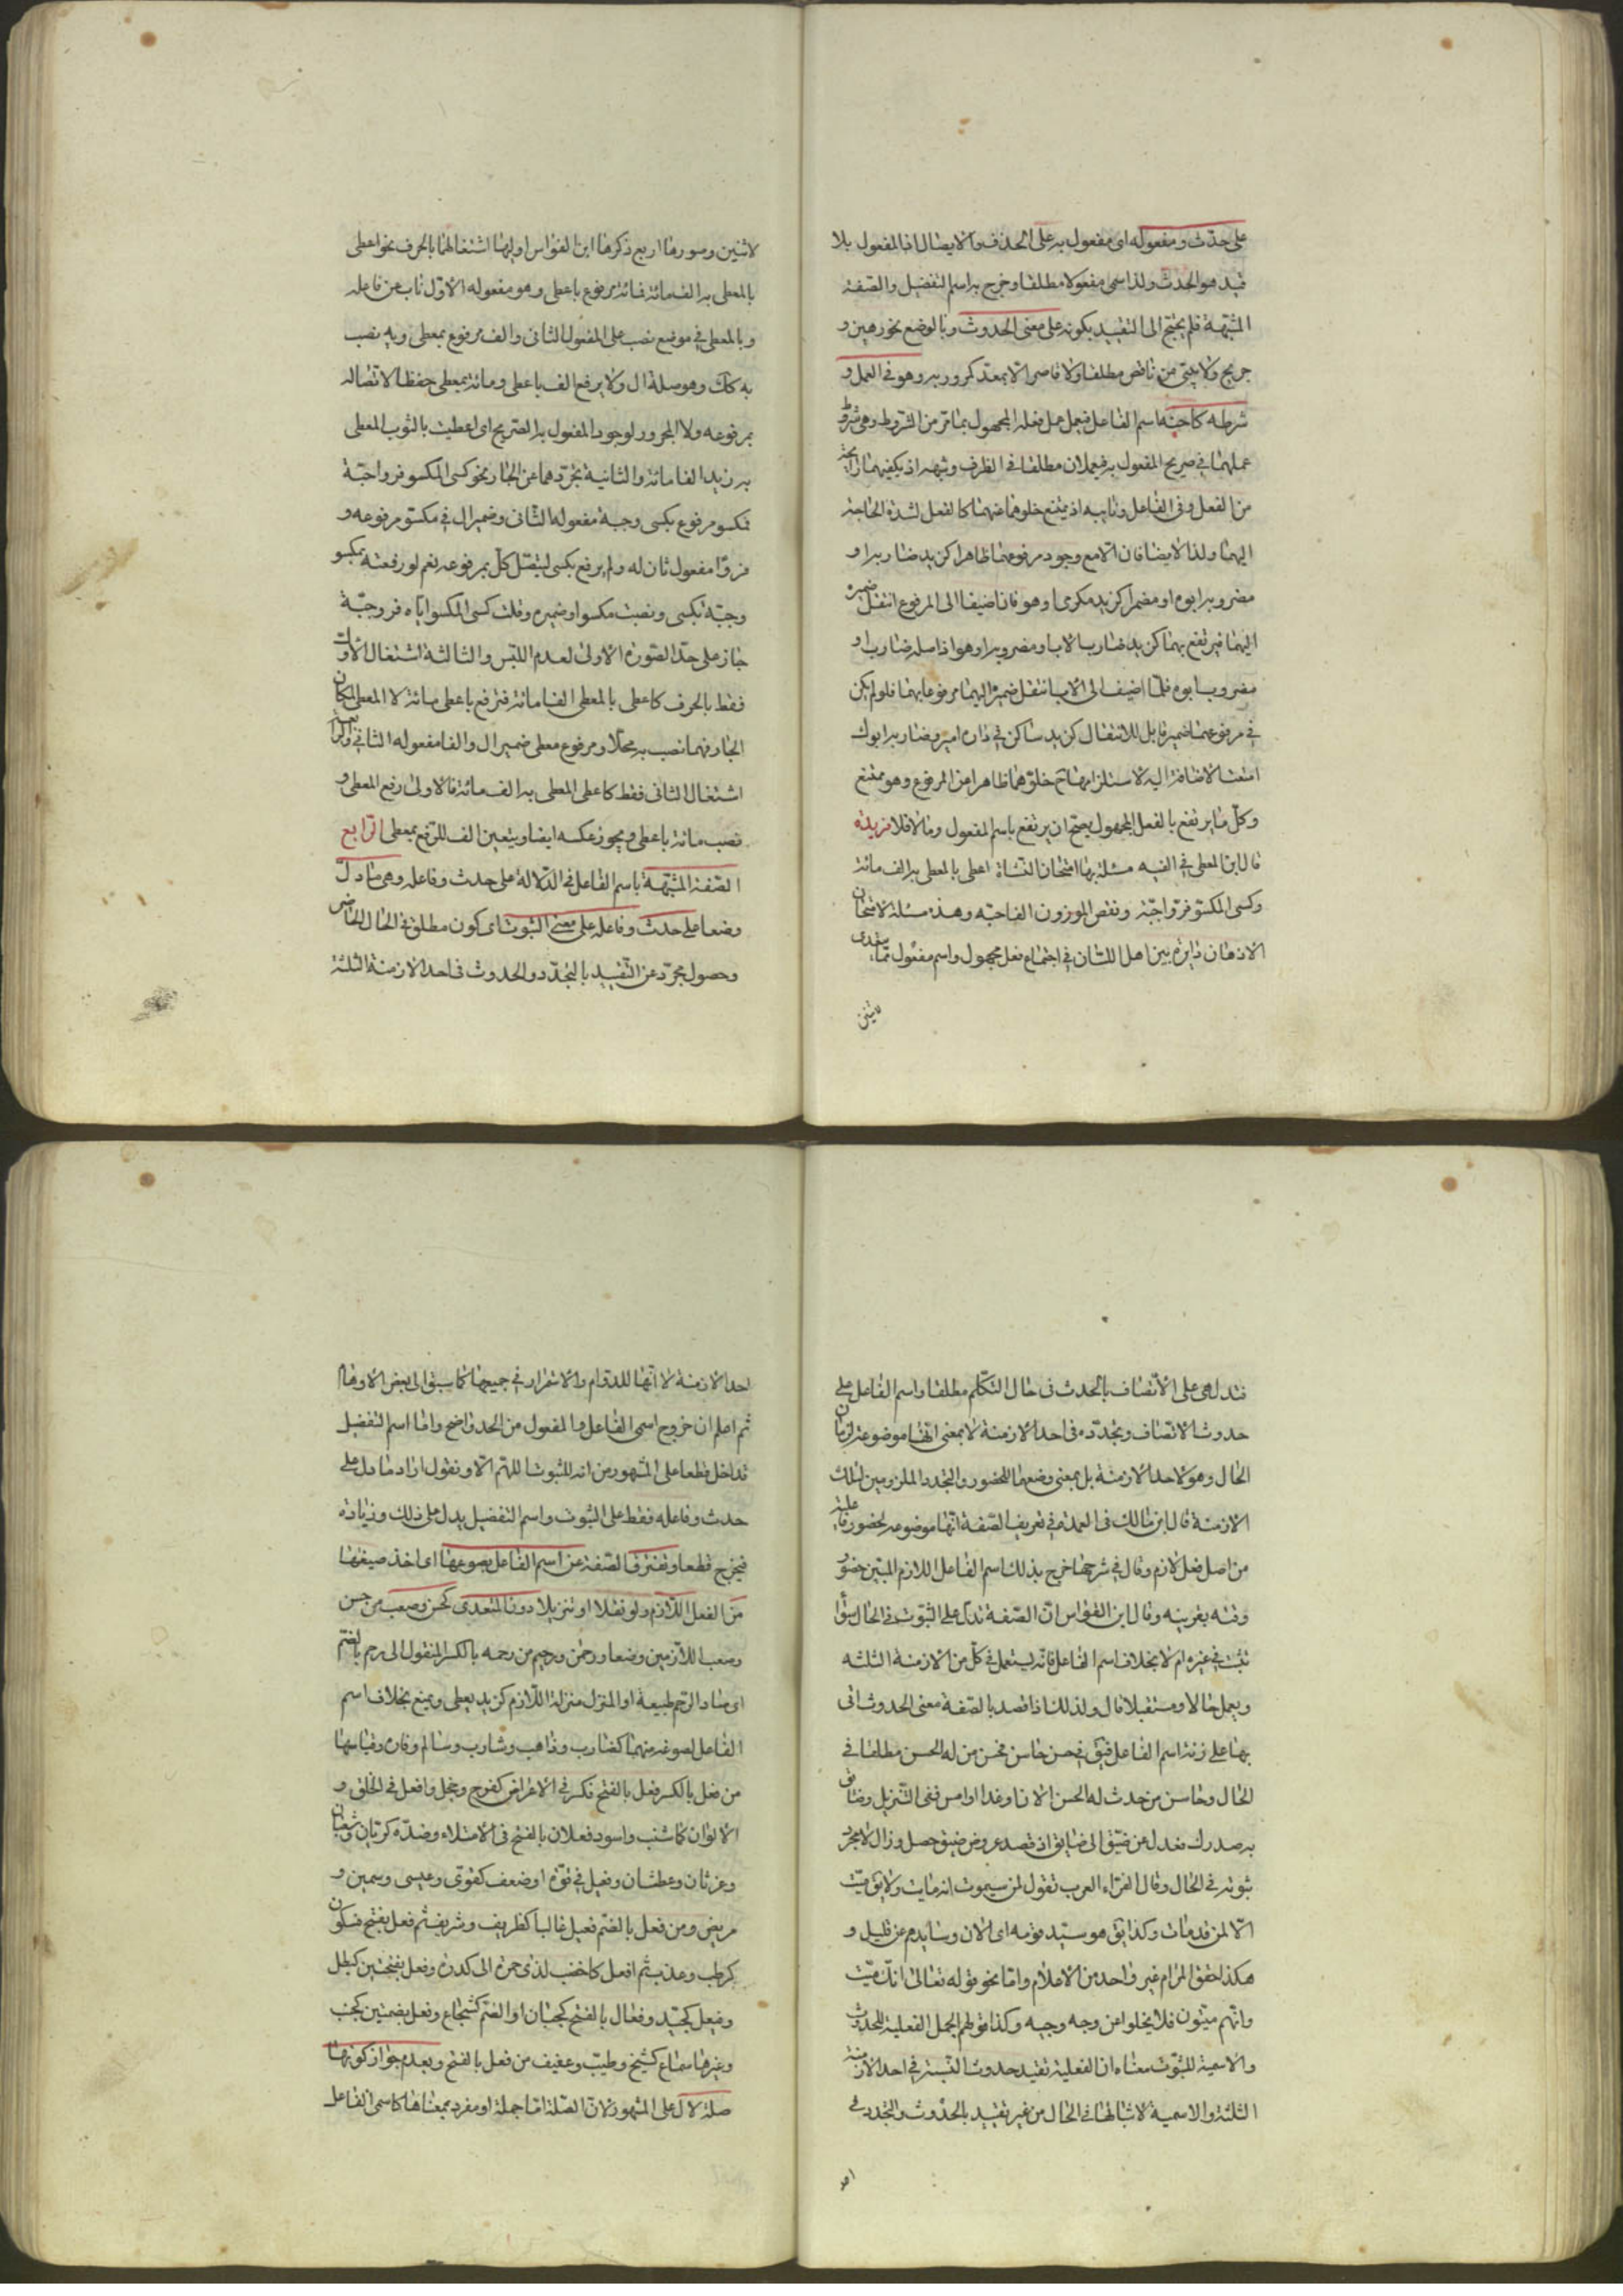 على حدث ومفعوله اى مفعول به على الحذف والايصال اذ المفعول بلا
قيد هو الحدث ولذا سمى مفعولا مطلقا وخرج به اسم التفضيل والصفة
المشبهة فلم يحتج الى التقييد بكونه على معنى الحدوث وبالوضع نحو رهين و
جريح ولا يبنى من ناقص مطلقا ولا قاصر الا بمعد كمرور به وهو فى العمل و
شرطه كاخيه اسم الفاعل فيعمل عمل فعله المجهول بما مر من الشروط وهى شروط
عملهما فى صريح المفعول به فيعملان مطلقا فى الظرف وشبهه اذ يكفيهما رايحة
من الفعل وفى الفاعل ونايبه اذ يمتنع خلوهما عنهما كالفعل لشدة الحاجة
اليهما ولذا لا يضافان الا مع وجود مرفوعهما ظاهرا كزيد ضاربه او
مضروبه ابوه او مضمرا كزيد مكرمى او هو فاذا ضيفا الى المرفوع انتقل ضميره
اليهما فيرتفع بهما كزيد ضارب الاب او مضروبه او هو اذ اصله ضارب او
مضروب ابوه فلما اضيف الى الاب انتقل ضميره اليهما مرفوعا بهما فلو لم يكن
فى مرفوعهما ضمير قابل للانتقال كزيد ساكن فى داره امير وضاربه ابوك
امتنت الاضافة اليه لاستلزامها ح خلوهما ظاهرا من المرفوع وهو ممتنع
وكل ما يرتفع بالفعل المجهول يصح ان يرتفع باسم المفعول وما لا فلا فريدة
قال ابن المعطى فى الفيه مسئلة بها امتحان النشاة اعطى بالمعطى به الف مائة
وكسى المكسو فروا جبة ونقص الموزون الفا جبه وهذه مسئلة لامتحان
الاذهان دايرة بين اهل اللسان فى اجتماع فعل مجهول واسم مفعول مما يتعدى
لاثنين
لاثنين وصورها اربع ذكرها ابن القواس اوليها اشتغالهما بالحرف نحو اعطى
بالمعطى به الف مائة فمائة مرفوع باعطى وهو مفعوله الاول ناب عن فاعله
وبالمعطى فى موضع نصب على المفعول الثانى والف مرفوع بمعطى وبه نصب
به كذلك وهو صلة ال ولا يرفع الف باعطى ومائة بمعطى حفظا لاتصاله
بمرفوعه ولا المجرور لوجود المفعول به الصريح اى اعطيت بالثوب المعطى
به زيد الفا مائة والثانية تجردهما عن الجار نحو كسى المكسو فروا جبة
فمكسو مرفوع بكسى وجبة مفعوله الثانى وضمير ال فى مكسو مرفوعه و
فروا مفعول ثان له ولم يرفع بكسى ليتصل كل بمرفوعه نعم لو رفعته بمكسو
وجبة بكسى ونصبت مكسوا وضميره وقلت كسى المكسو اياه فرو جبة
جاز على حد الصورة الاولى لعدم اللبس والثالثة اشتغال الاول
فقط بالحرف كاعطى بالمعطى الفا مائة فترفع باعطى مائة لا المعطى لمكان
الجار فهما نصب به محلا ومرفوع معطى ضمير ال والفا مفعوله الثانى والرابعة
اشتغال الثانى فقط كاعطى المعطى به الف مائة فالاولى رفع المعطى و
نصب مائة باعطى ويجوز عكسه ايضا ويتعين الف للرفع بمعطى الرابع
الصفة المشبهة باسم الفاعل فى الدلالة على حدث وفاعله وهى ما دل
وضعا على حدث وفاعله على معنى الثبوت اى كون مطلق فى الحال الحاضر
وحصول مجرد عن التقييد بالتجدد والحدوث فى احد الازمنة الثلثة
فتدل هى على الاتصاف بالحدث فى حال التكلم مطلقا واسم الفاعل على
حدوث الاتصاف وتجدده فى احد الازمنة لا بمعنى انها موضوعة لزمان
الحال وهو لاحد الازمنة بل بمعنى وضعها للحضور والتجدد الملزومين لتلك
الازمنة قال ابن مالك فى العمدة فى تعريف الصفة انها موضوعة لحضور فاعلية
من اصل فعل لازم وقال فى شرحها خرج بذلك اسم الفاعل اللازم المبين حضور
وقته بقرينه وقال ابن القواس ان الصفة تدل على الثبوت فى الحال سواء
ثبت فى غيره ام لا بخلاف اسم الفاعل فانه يستعمل فى كل من الازمنة الثلثه
ويعمل حالا ومستقبلا قال ولذلك اذا قصد بالصفة معنى الحدوث اتى
بها على زنة اسم الفاعل فيق فى حسن حاسن فحسن من له الحسن مطلقا فى
الحال وحاسن من حدث له الحسن الان او غدا او امس ففى التنزيل وضائق
به صدرك فعدل عن ضيق الى ضايق اذ قصد عروض ضيق حصل وزال لا مجرد
ثبوته فى الحال وقال الفراء العرب تقول لمن سيموت انه مايت ولا يق ميت
الا لمن قد مات وكذا يق هو سيد قومه اى الان وسايدهم عن قليل و
هكذا حقق المرام غير واحد من الاعلام واما نحو قوله تعالى انك ميت
وانهم ميتون فلا يخلوا عن وجه وجيه وكذا قولهم الجمل الفعلية للحدوث
والاسمية للثبوت معناه ان الفعلية تفيد حدوث النسبة فى احد الازمنة
الثلثة والاسمية لاثباتها فى الحال من غير تقييد بالحدوث والتجدد فى
احد
احد الازمنة لا انها للدوام والاستمرار فى جميعها كما سبق الى بعض الاوهام
ثم اعلم ان خروج اسمى الفاعل والمفعول من الحد واضح واما اسم التفضيل
فداخل قطعا على المشهور من انه للثبوت اللهم الا ونقول اراد ما دل على
حدث وفاعله فقط على الثبوت واسم التفضيل يدل على ذلك وزيادة
فيخرج قطعا وتفترق الصفة عن اسم الفاعل بصوغها اى اخذ صيغتها
من الفعل اللازم ولو نقلا او تنزيلا دون المتعدى كحسن وصعب من حسن
وصعب اللازمين وضعا ورحمن ورحيم من رحمه بالكسر المنقول الى رحم بالضم
اى صار الرحم طبيعة او المنزل منزلة اللازم كزيد يعطى ويمنع بخلاف اسم
الفاعل لصوغه منهما كضارب وذاهب وشارب وسالم وفان وقياسها
من فعل بالكسر فعل بالفتح فكسر فى الاعراض كفرح وخجل وافعل فى الخلق و
الالوان كاشنب واسود فعلان بالفتح فى الامتلاء وضده كريان وشبعان
وغرثان وعطشان وفعيل فى قوة او ضعف كقوى وعيسى وسمين و
مريض ومن فعل بالضم فعيل غالبا كظريف وشريف ثم فعل بفتح فسكون
كرطب وعذب ثم افعل كاخضب لذى حمرة الى كدرة وفعل بفتحتين كبطل
وفيعل كجيد وفعال بالفتح كجبان او الضم كشجاع وفعل بضمتين كجنب
وغيرها سماع كشيخ وطيب وعفيف من فعل بالفتح وبعدم جواز كونها
صلة لال على المشهور لان الصلة اما جملة او مفرد بمعناها كاسمى الفاعل